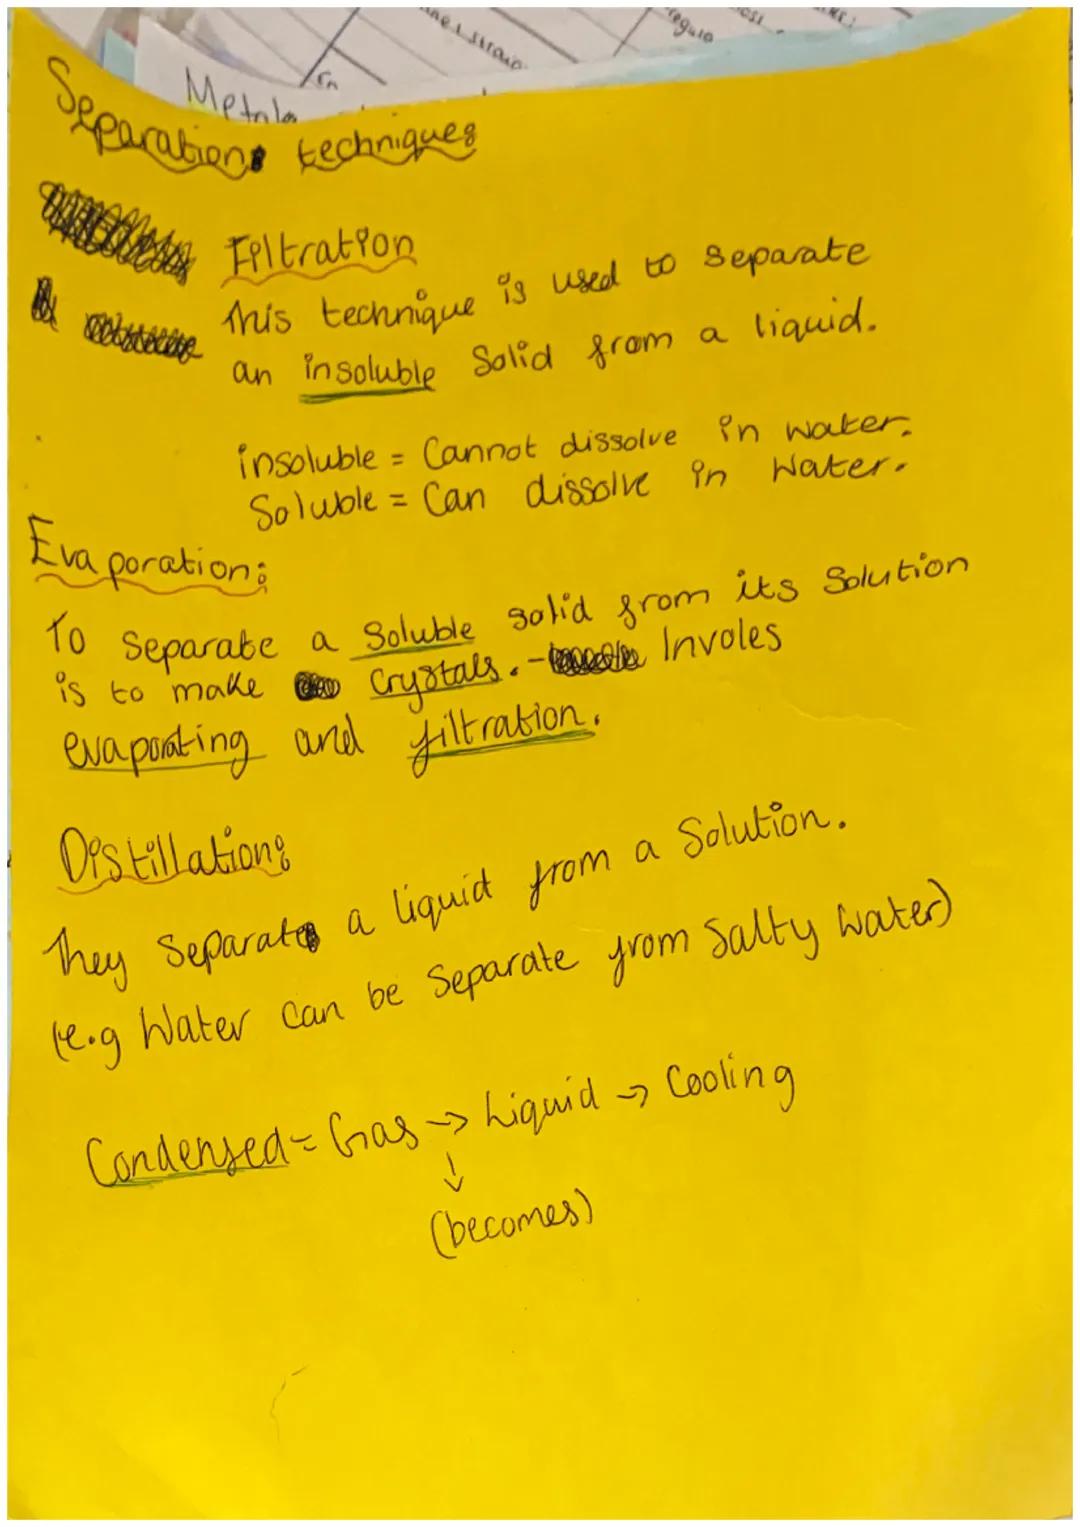 Metals
Separation techniques
Filtration
This technique is used to separate
an insoluble Solid from a liquid.
insoluble = Cannot dissolve in water.
Soluble = Can dissolve in Water.
Evaporation:
To Separate a Soluble solid from its Solution
is to make Crystals. - Involes
evaporating and filtration.
Distillation:
They Separate a liquid from a Solution.
(e.g Water can be Separate from Salty Water)
Condensed = Gas -> Liquid -> Cooling
↓
(becomes)